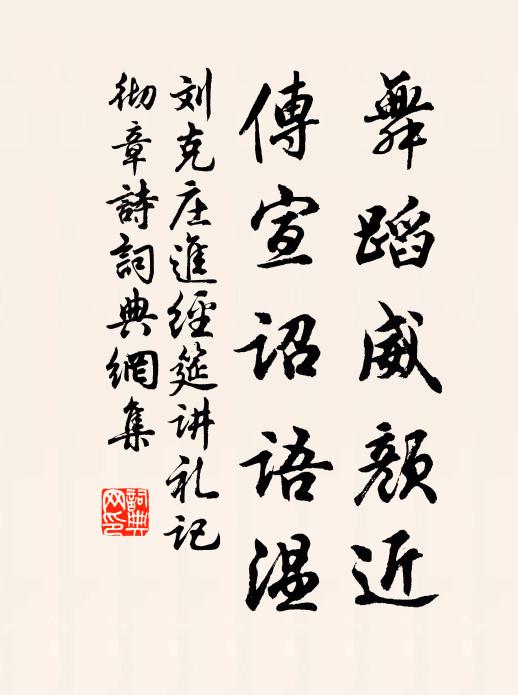 舞蹈威颜近
傳宣詔語温
刘克庄進經筵讲礼记
彻章詩詞典網集
詞典
网印